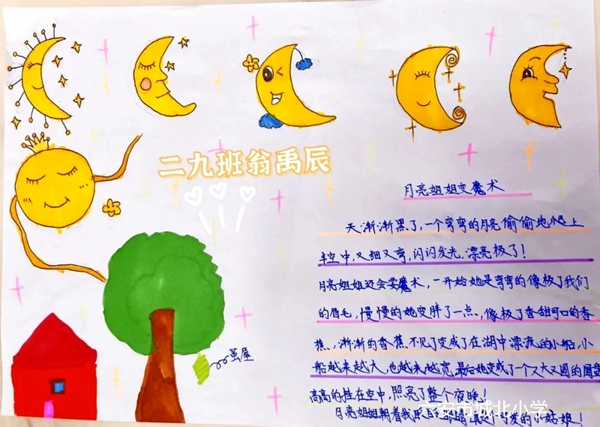 二九班翁禹辰
月亮姐姐变魔术
天渐渐黑了,一个弯弯的月亮偷偷地爬上
半空中,又细又弯,闪闪发光,漂亮极了!
月亮姐姐还会变魔术,一开始她是弯弯的像极了我们
的眉毛,慢慢的她变胖了一点,像极了香甜可口的香
蕉,渐渐的香蕉不见了变成了在湖中漂流的小船,小
船越来越大,也越来越宽,最后她变成了一个又大又圆的圆盘
高高的挂在空中,照亮了整个夜晚!
月亮姐姐朝着我
可爱的小姑娘!
市城北小学